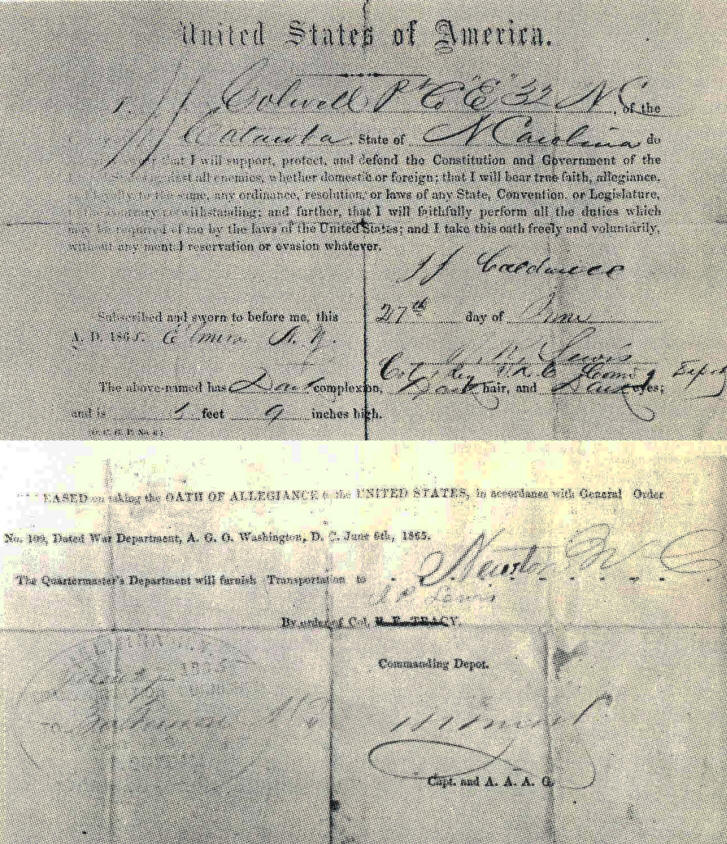 United States of America.
I, J J Colwell P" Co "E" 32 N C, of the
Catawba, State of N Carolina do
that I will support, protect, and defend the Constitution and Government of the
against all enemies, whether domestic or foreign; that I will bear true faith, allegiance,
and loyalty to the same, any ordinance, resolution, or laws of any State, Convention, or Legislature,
to the contrary notwithstanding; and further, that I will faithfully perform all the duties which
may be required of me by the laws of the United States; and I take this oath freely and voluntarily,
without any mental reservation or evasion whatever.
J J Caldwell
Subscribed and sworn to before me, this 27th day of June
A. D. 1865. Elmira N. Y.
Lewis
Col 1 Reg V. R. C. Comd'g
The above-named has Dark complexion, Dark hair, and Dark eyes;
and is 5 feet 9 inches high.
EASED on taking the OATH OF ALLEGIANCE to the UNITED STATES, in accordance with General Order
No. 109, Dated War Department, A. G. O. Washington, D. C. June 6th, 1865.
The Quartermaster's Department will furnish Transportation to Newton N C
Lewis
By order of Col. B. F. TRACY.
Commanding Depot.
ELMIRA N.Y.
1865
Capt. and A. A. A. G.